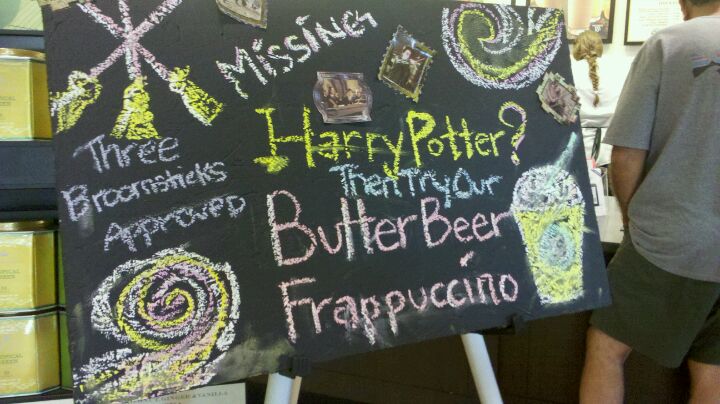 Missing
Harry Potter?
Then Try Our
Butter Beer
Frappuccino
Three
Broomsticks
Approved
& VANILLA